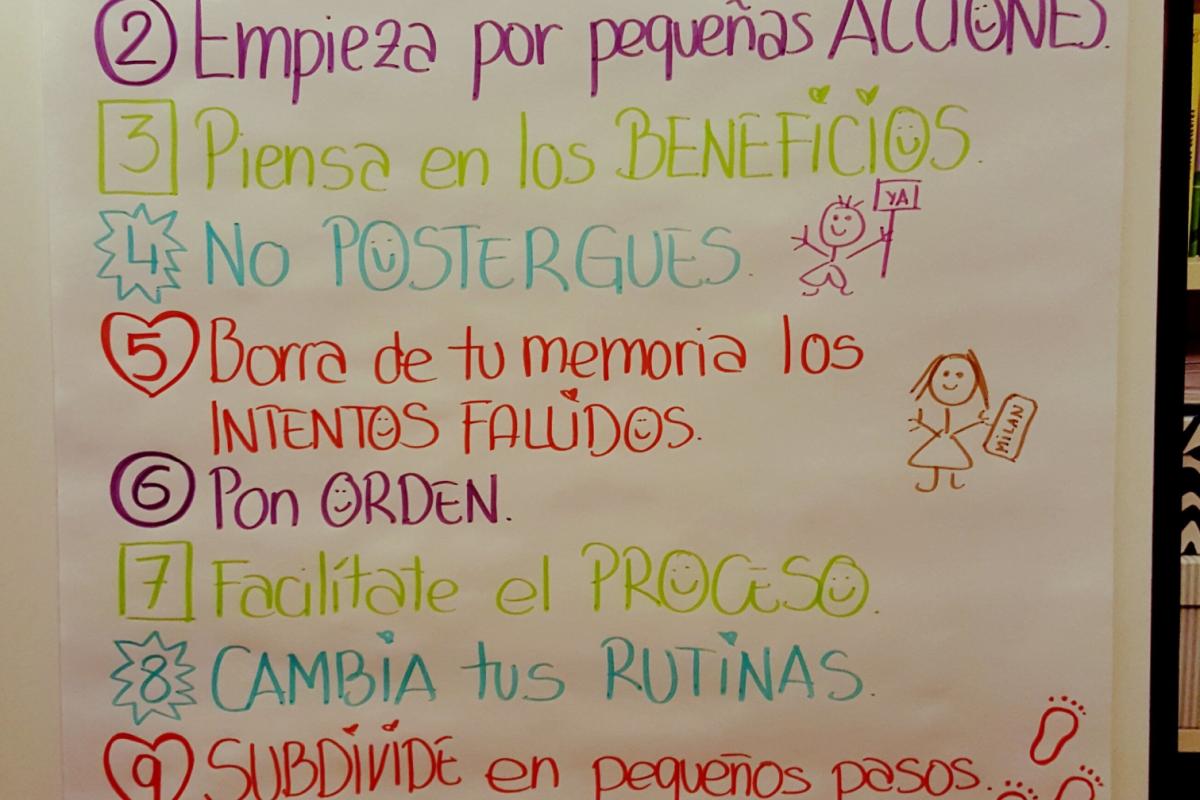 2 Empieza por pequeñas ACCIONES.
3 Piensa en los BENEFICIOS.
4 No POSTERGUES.
YA
5 Borra de tu memoria los
INTENTOS FALLIDOS.
MILAN
6 Pon ORDEN.
7 Facilítate el PROCESO.
8 CAMBIA tus RUTINAS.
9 SUBDIVIDE en pequeños pasos.